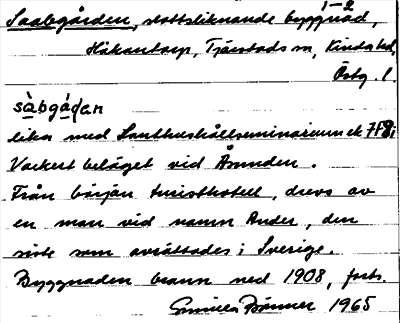 1-2
Saabgården, slottsliknande byggnad,
Håkantorp, Tjärstads sn, Kinda hd,
Östg. l.
sàbgá̱dan
lika med Lanthushållseminarium ek 778;
Vackert beläget vid Åsunden.
Från början turisthotell, drevs av
en man vid namn Ander, den
siste som avrättades i Sverige.
Byggnaden brann ned 1908, forts.
Gunilla Bönner 1965